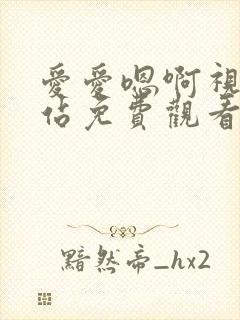 愛愛嗯啊視
佔免費觀看
黯然帝_hx2